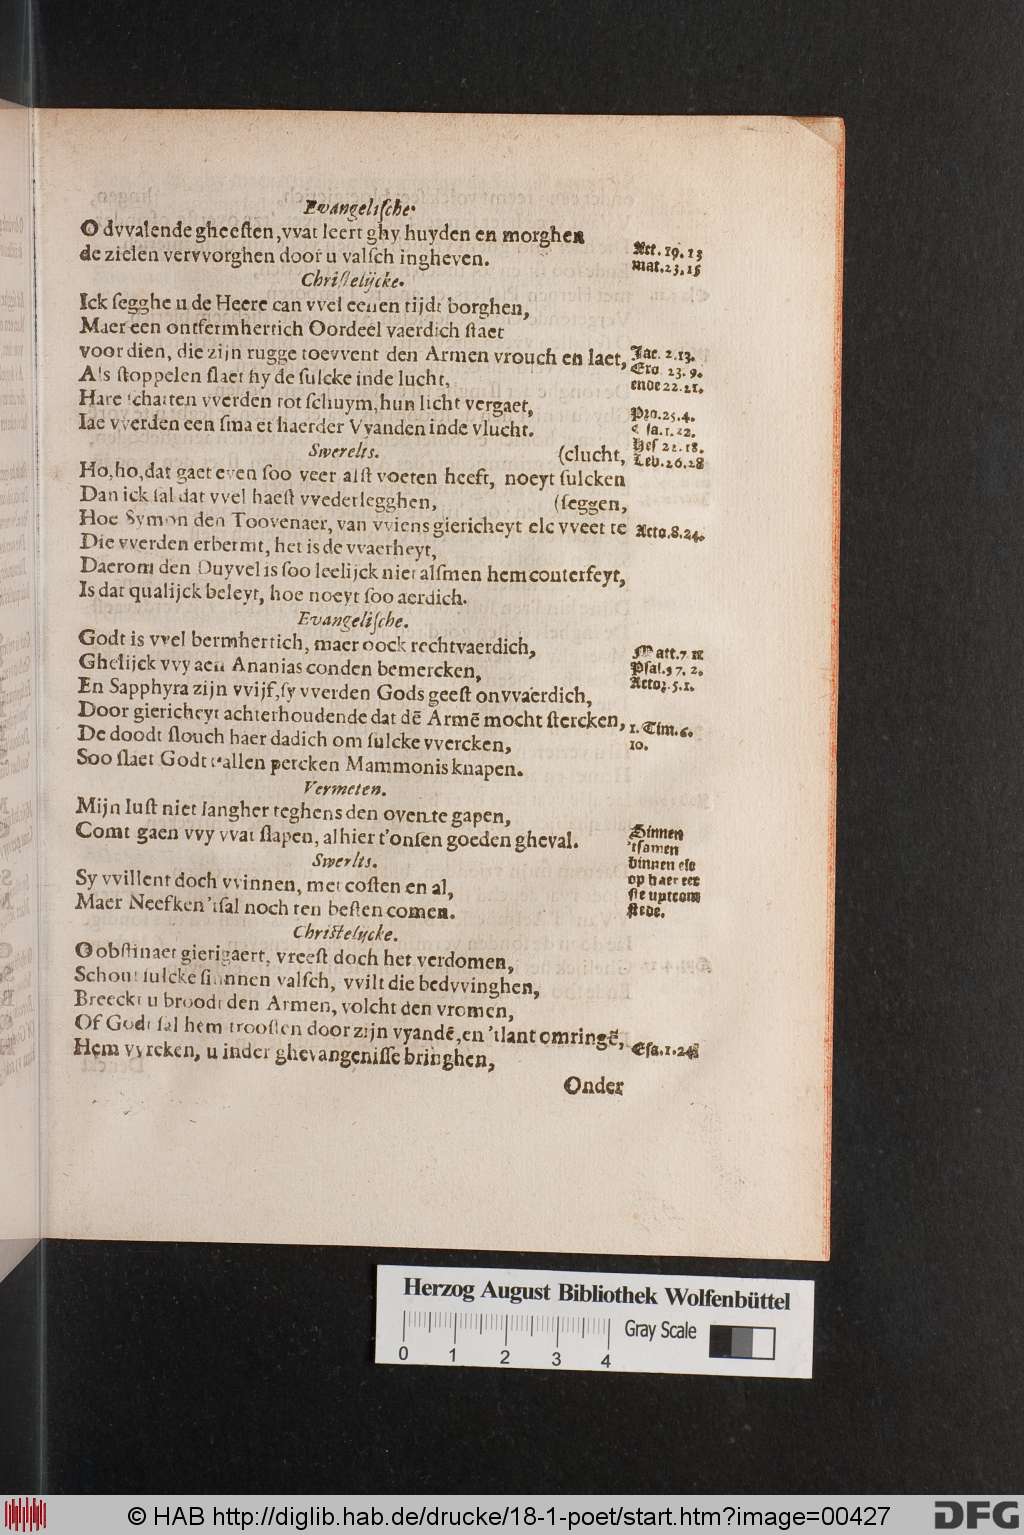 Evangelische.
O dvvalende gheesten, vvat leert ghy huyden en morghen
de zielen vervvorghen door u valsch ingheven.
Act. 19. 13
mat. 23. 15
Christelijcke.
Ick segghe u de Heere can vvel eenen tijdt borghen,
Maer een ontfermhertich Oordeel vaerdich staet
voor dien, die zijn rugge toevvent den Armen vrouch en laet,
Jac. 2. 13.
Als stoppelen slaet hy de sulcke inde lucht,
Exo. 23. 9.
ende 22. 21.
Hare schatten vverden tot schuym, hun licht vergaet,
Pro. 25. 4.
Iae vverden een smaet haerder Vyanden inde vlucht.
Esa. 1. 22.
Swerelts. (clucht,
Hes 22. 18.
Lev. 26. 28
Ho, ho, dat gaet even soo veer alst voeten heeft, noeyt sulcken
Dan ick sal dat vvel haest vvederlegghen, (seggen,
Hoe Symon den Toovenaer, van vviens giericheyt elc vveet te
Acto. 8. 24.
Die vverden erbermt, het is de vvaerheyt,
Daerom den Duyvel is soo leelijck niet alsmen hem conterfeyt,
Is dat qualijck beleyt, hoe noeyt soo aerdich.
Evangelische.
Godt is vvel bermhertich, maer oock rechtvaerdich,
Matt. 7
Ghelijck vvy aen Ananias conden bemercken,
Psal. 37. 2.
En Sapphyra zijn vvijf, sy vverden Gods geest onvvaerdich,
Actor. 5. 1.
Door giericheyt achterhoudende dat dē Armē mocht stercken,
1. Tim. 6.
De doodt slouch haer dadich om sulcke vvercken,
10.
Soo slaet Godt t'allen percken Mammonis knapen.
Vermeten.
Mijn lust niet langher teghens den oven te gapen,
Comt gaen vvy vvat slapen, alhier t'onsen goeden gheval.
Binnen
'tsamen
binnen ese
op haer eer
ste uptcom
stede.
Swerlts.
Sy vvillent doch vvinnen, met costen en al,
Maer Neefken 'tsal noch ten besten comen.
Christelycke.
O obstinaet gierigaert, vreest doch het verdomen,
Schout sulcke sinnen valsch, vvilt die bedvvinghen,
Breeckt u broodt den Armen, volcht den vromen,
Of Godt sal hem troosten door zijn vyandē, en 'tlant omringē,
Hem vvreken, u inder ghevangenisse bringhen,
Esa. 1. 24
Onder
Herzog August Bibliothek Wolfenbüttel
0 1 2 3 4
Gray Scale
© HAB http://diglib.hab.de/drucke/18-1-poet/start.htm?image=00427
DFG